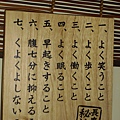 長寿の秘訣
一、よく笑うこと
二、よく働くこと
三、よく歩くこと
四、よく眠ること
五、早起きすること
六、腹七分に抑える
七、くよくよしない